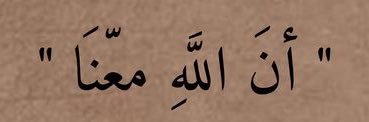 " أنَ اللَّهِ معّنَا "